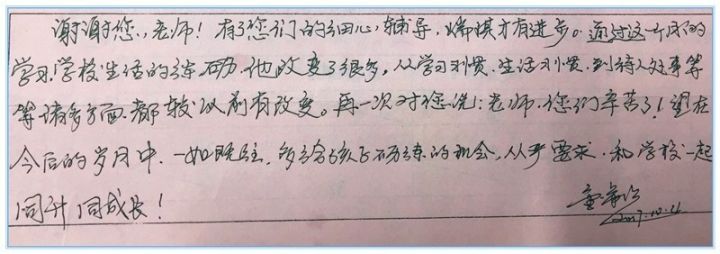 谢谢您,老师!有了您们的细心辅导,婿琪才有进步。通过这一个月的
学习学校生活的练砺,他改变了很多,从学习习惯.生活习惯.到待人处事等
等诸多方面都较以前有改变。再一次对您说:老师.您们辛苦了!望在
今后的岁月中.一如既往.多给孩子砺练的机会,从严要求.和学校一起
同升同成长!
2017.10.4